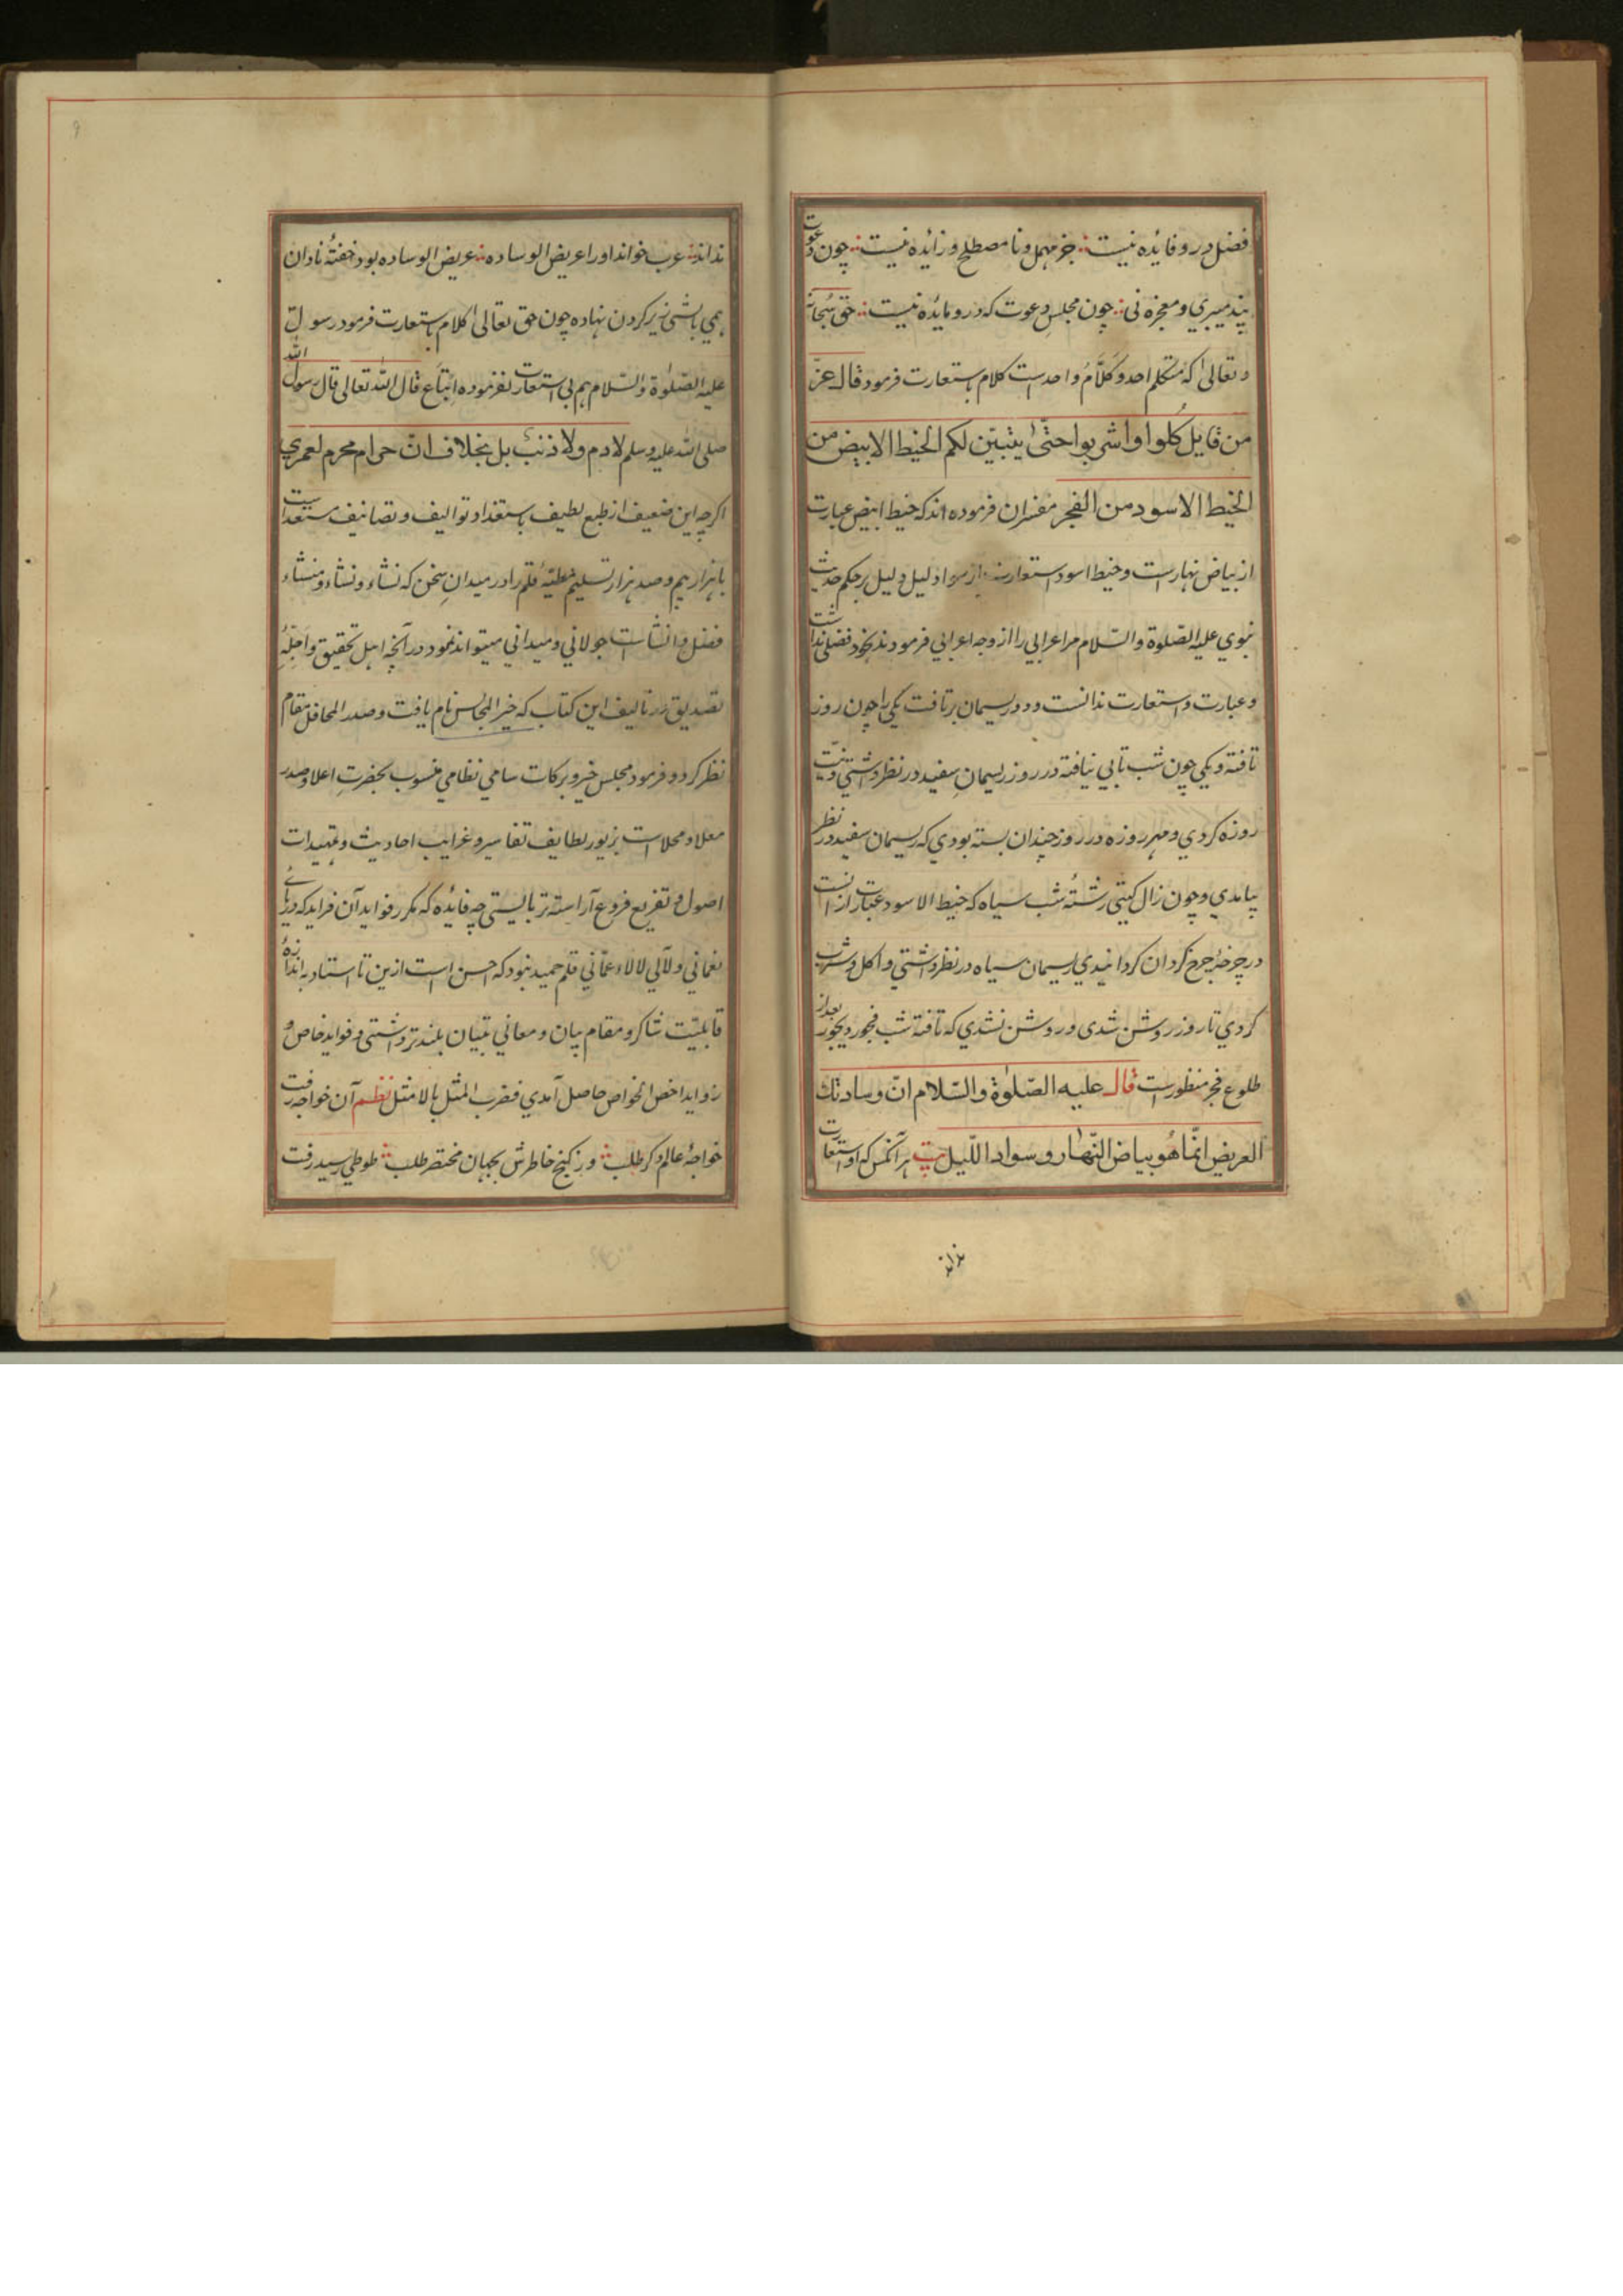 فضل درو فایده نیست جز مهمل و نا مصطلح و زائده نیست چون دعوت
پیغمبری و معجزه نی چون مجلس دعوت که درو مائده نیست حق سبحانه
و تعالی که متکلم احد و کلام واحدست کلام باستعارت فرمود قال عزّ
من قایل کُلوا واشربوا حتّیٰ یتبیّن لکم الخیط الابیض من
الخیط الاسود من الفجر مفسران فرموده اند که خیط ابیض عبارت
از بیاض نهارست و خیط اسود استعارت از سواد لیل دلیل بر حکم حدیث
نبوی علیه الصّلوة والسّلام مر اعرابی را از وجه اعرابی فرمودند بخود فضلی نداشت
و عبارت و استعارت ندانست و دو ریسمان بر تافت یکی را چون روز
تافته و یکی چون شب تابی نیافته در روز ریسمانِ سفید در نظر داشتی و نیّت
روزه کردی و مهر روزه در روز چندان بسته بودی که ریسمان سفید در نظر
بیامدی و چون زال گیتی رشتهٔ شب سیاه که خیط الاسود عبارت از انست
در چرخهٔ چرخ گردان گردانیدی ریسمان سیاه در نظر داشتی و اکل و شرب
کردی تا روز روشن شدی و روشن نشدی که تافته شب فجور دیجور بعد از
طلوع فجر منظورست قال علیه الصّلوٰة والسّلام انّ وسادتك
العریض انّما هُو بیاض النّهار و سواد اللّیل بیت هر آنکس که او استعارت
نداند عرب خواند او را عریض الوساده عریض الوساده بود خفتهٔ نادان
همی بالشی زیر گردن نهاده چون حق تعالیٰ کلام باستعارت فرمود رسول الله
علیه الصّلوٰة والسّلام هم بی استعارت نفرموده اتّباع قال الله تعالی قال رسول
صلی الله علیه وسلم لادم ولا ذنب بل بخلاف ان حرام محرم لعمری
اگرچه این ضعیف از طبع لطیف باستعداد توالیف و تصانیف مستعدّست
با هزار بیم و صد هزار تسلیم مطیّهٔ قلم را در میدانِ سخن که نشاء و نشاء و منشاء
فضل و انشاست جولانی و میدانی میتواند نمود در آنچه اهل تحقیق و اجلّهٔ
تصدیق در تالیف این کتاب که خیر المجالس نام یافت و صدر المحافل مقام
نظر کرد و فرمود مجلس خیر و برکات سامی نظامی منسوب بحضرتِ اعلا و صدر
معلا و محلاست بزیور لطایف تفاسیر و غرایب احادیث و تمهیدات
اصول و تفریع فروع آراسته تر بایستی چه فائده که مکرر فواید آن فراید که دریای
نعمانی و لآلی لالاء عمّانی قلم حمید نبود که احسن است ازین تا استاد به اندازهٔ
قابلیّت شاکر و مقام بیان و معانی تبیان بلندتر داشتی و فواید خاص و
زواید اخص الخواص حاصل آمدی فضرب المثل بالامثل نظم آن خواجه رفت
خواجهٔ عالم دگر طلب وز گنج خاطرش بجهان مختصر طلب طوطی رسید رفت